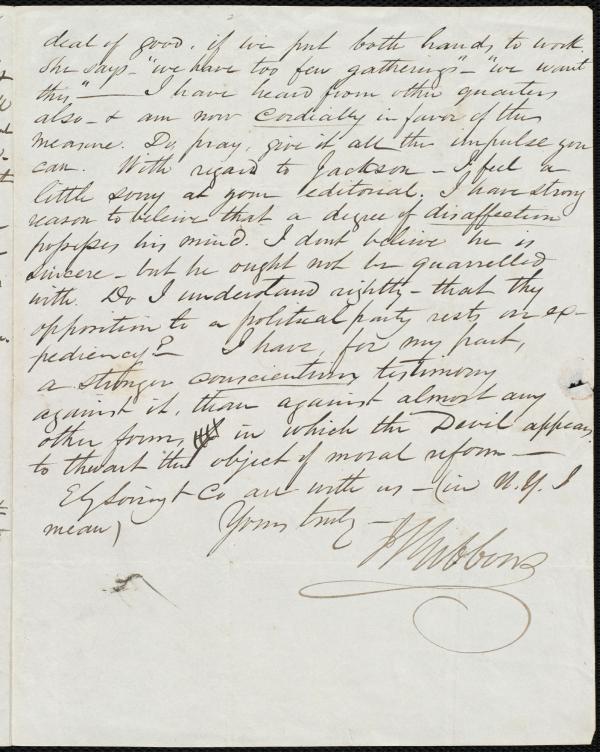 deal of good, if we put both hands to work.
She says - "we have too few gatherings" - "we want
this," — I have heard from other quarters
also - & am now cordially in favor of this
measure. Do, pray, give it all the impulse you
can. With regard to Jackson - I feel a
little sorry at your editorial. I have strong
reason to believe that a degree of disaffection
possesses his mind. I dont believe he is
sincere - but he ought not be quarrelled
with. Do I understand rightly - that thy
opposition to a political party rests on ex-
pediency? — I have, for my part,
a stronger conscientious testimony
against it, than against almost any
other form, in which the Devil appears,
to thwart the object of moral reform —
& Co are with us - (in N.Y. I
mean) Yours truly -
J S Gibbons